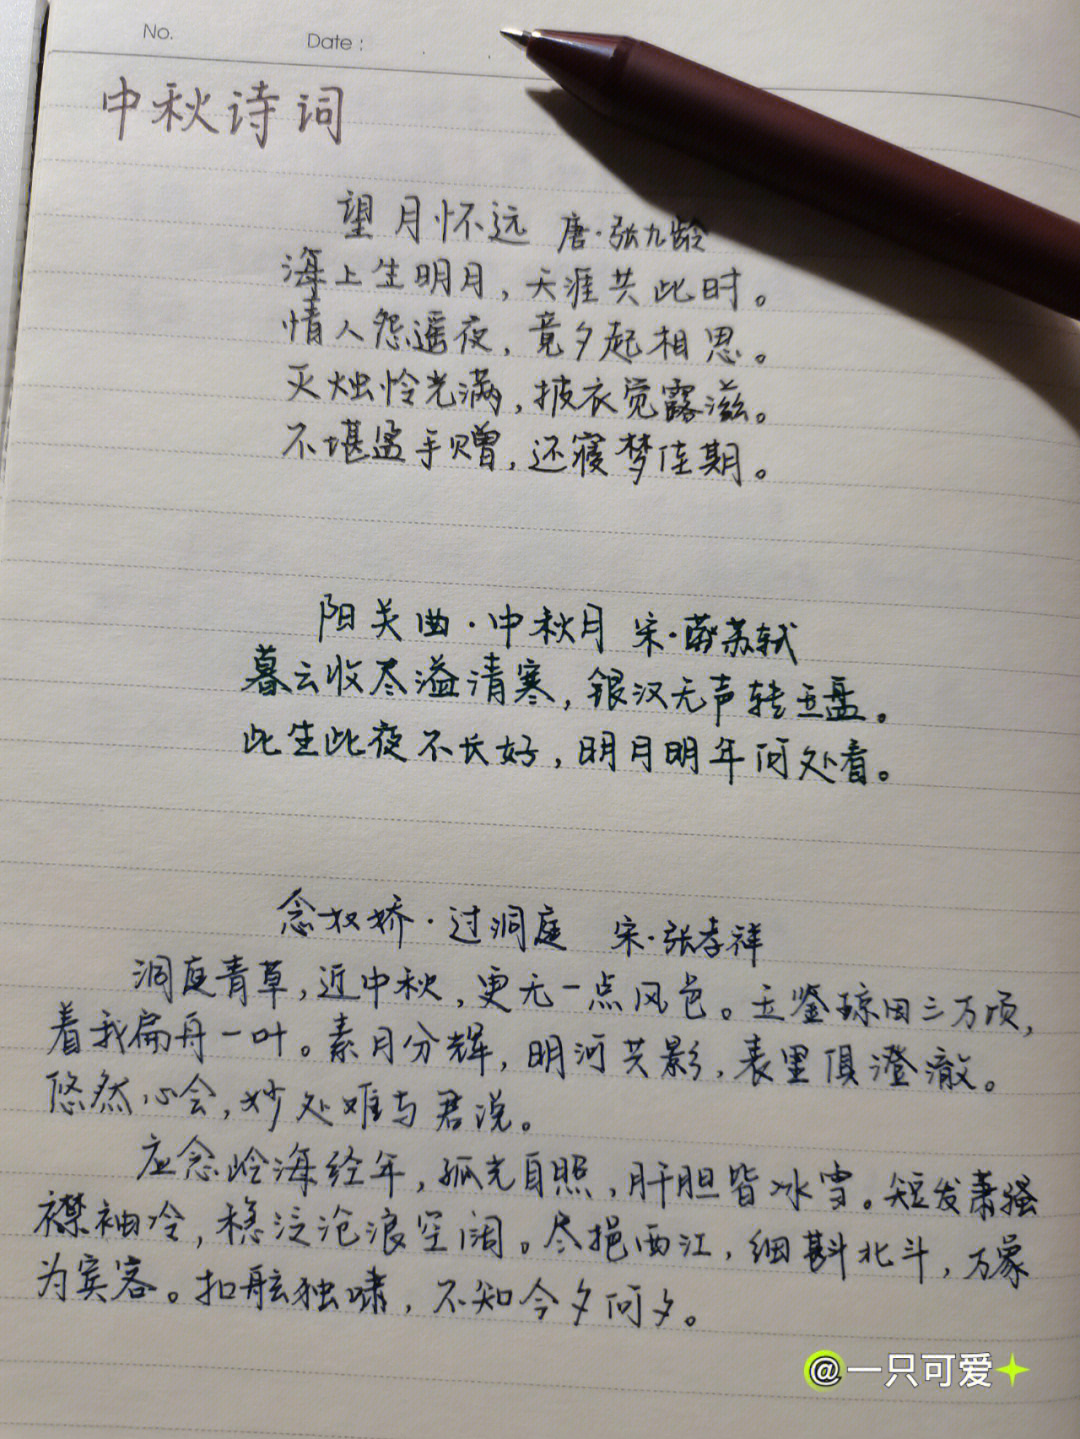 No.
Date:
中秋诗词
望月怀远 唐·张九龄
海上生明月，天涯共此时。
情人怨遥夜，竟夕起相思。
灭烛怜光满，披衣觉露滋。
不堪盈手赠，还寝梦佳期。
阳关曲·中秋月 宋·苏轼
暮云收尽溢清寒，银汉无声转玉盘。
此生此夜不长好，明月明年何处看。
念奴娇·过洞庭 宋·张孝祥
洞庭青草，近中秋，更无一点风色。玉鉴琼田三万顷，
着我扁舟一叶。素月分辉，明河共影，表里俱澄澈。
悠然心会，妙处难与君说。
应念岭海经年，孤光自照，肝胆皆冰雪。短发萧骚
襟袖冷，稳泛沧浪空阔。尽挹西江，细斟北斗，万象
为宾客。扣舷独啸，不知今夕何夕。
@一只可爱